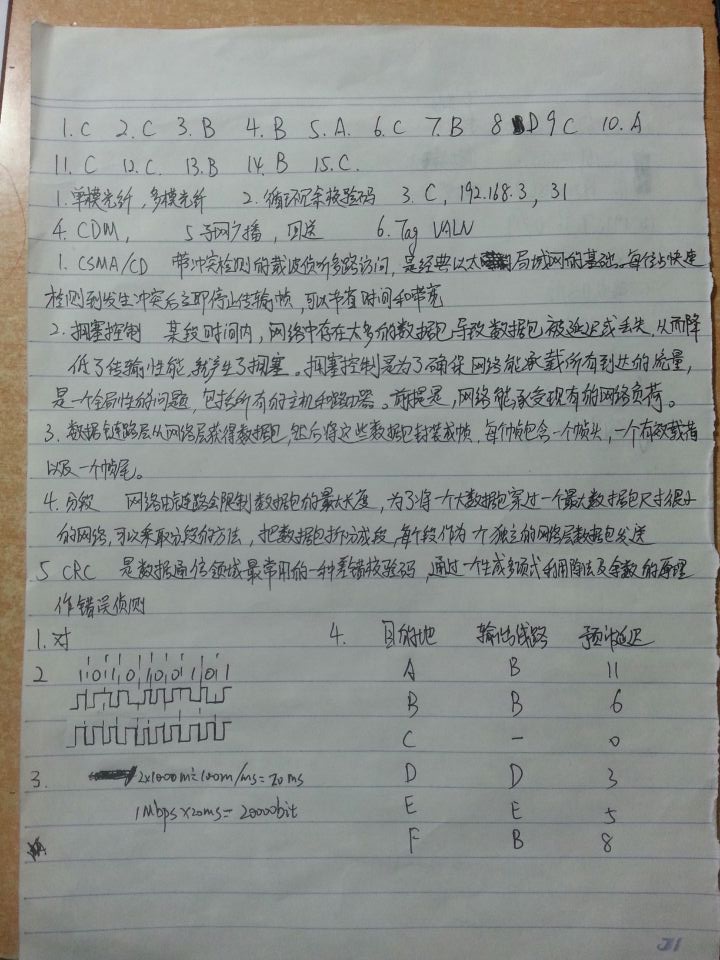 1. C 2. C 3. B 4. B 5. A. 6. C 7. B 8 D 9 C 10. A
11. C 12. C. 13. B 14. B 15. C.
1. 单模光纤,多模光纤 2. 循环冗余校验码 3. C, 192.168.3, 31
4. CDM, 5 子网广播,回送 6. Tag VALN
1. CSMA/CD 带冲突检测的载波侦听多路访问,是经典以太局域网的基础。每个站快速
检测到发生冲突后立即停止传输帧,可以节省时间和带宽
2. 拥塞控制 某段时间内,网络中存在太多的数据包导致数据包被延迟或丢失,从而降
低了传输性能,就产生了拥塞。拥塞控制是为了确保网络能承载所有到达的流量,
是一个全局性的问题,包括所有的主机和路由器。前提是,网络能承受现有的网络负荷。
3. 数据链路层从网络层获得数据包,然后将这些数据包封装成帧,每个帧包含一个帧头,一个有效载荷
以及一个帧尾。
4. 分段 网络或链路会限制数据包的最大长度,为了将一个大数据包穿过一个最大数据包尺寸很小
的网络,可以采取分段的方法,把数据包拆分成段,每个段作为一个独立的网络层数据包发送
5 CRC 是数据通信领域最常用的一种差错校验码,通过一个生成多项式利用除法及余数的原理
作错误侦测
1. 对 4. 目的地 输出线路 预计延迟
2 1 0 1 1 0 1 0 0 1 0 1 A B 11
B B 6
C - 0
3. 2x1000m÷100m/ms=20ms D D 3
1Mbps×20ms=20000bit E E 5
F B 8
J1